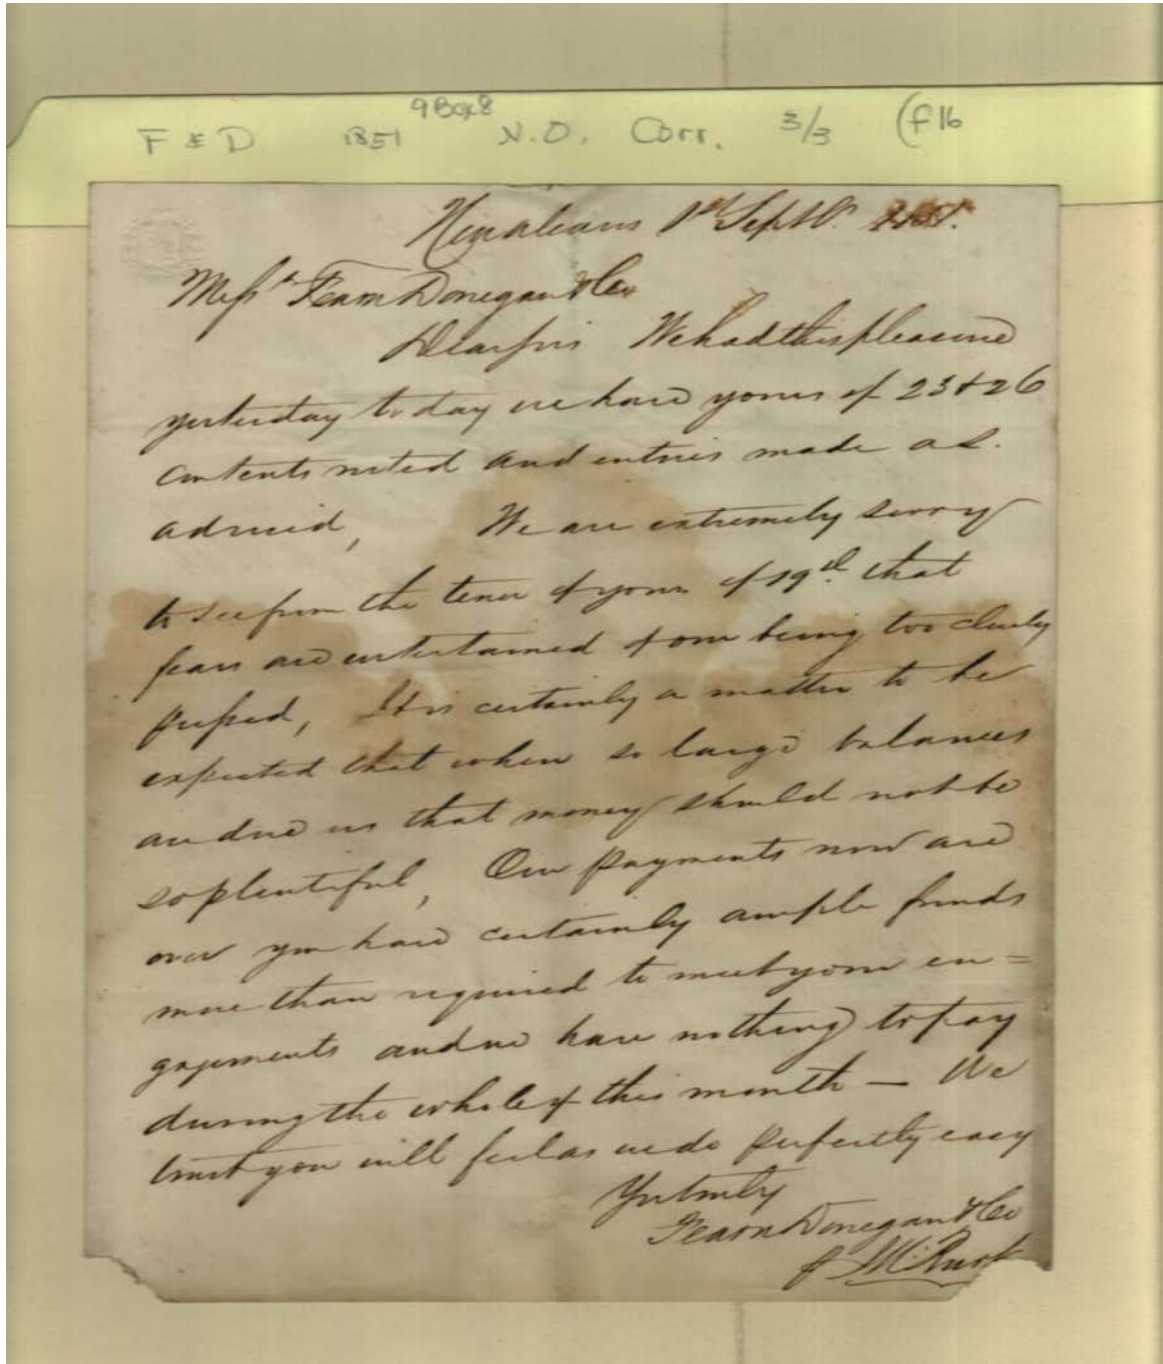 9Box8
F & D 1851 N.O. Corr. 3/3 (f16
New Orleans 1st Septbr. 1851.
Messrs Fearn Donegan & Co
Dear sirs We had this pleasure
yesterday to day we have yours of 23 & 26
contents noted and entries made as.
advised, We are extremely sorry
to see from the tenor of yours of 19th that
fears are entertained of our being too closely
pressed, It is certainly a matter to be
expected that when so large balances
are due us that money should not be
so plentiful, Our payments now are
over you have certainly ample funds
more than required to meet your en=
gagements and we have nothing to pay
during the whole of this month — We
trust you will feel as we do perfectly easy
Yrs truly
Fearn Donegan & Co